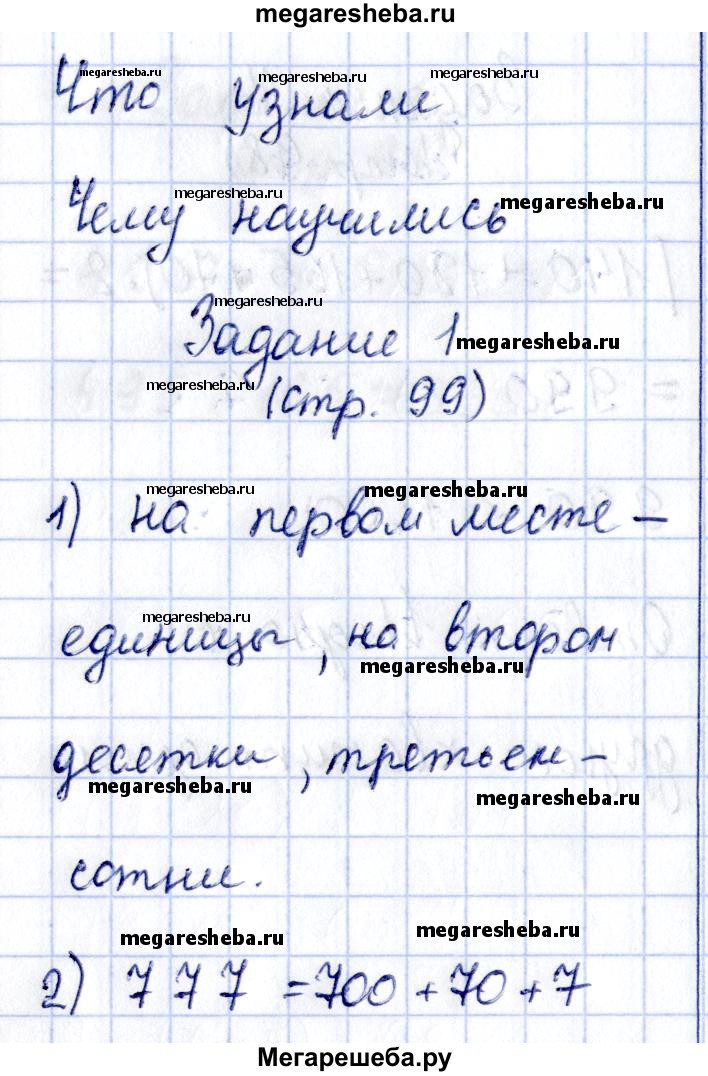 megaresheba.ru
megaresheba.ru megaresheba.ru megaresheba.ru
Что узнали
megaresheba.ru megaresheba.ru
Чему научились
megaresheba.ru
Задание 1 megaresheba.ru
megaresheba.ru (стр. 99)
megaresheba.ru megaresheba.ru
1) на первом месте -
megaresheba.ru
единицы, на втором
megaresheba.ru
десетки, третьем -
megaresheba.ru megaresheba.ru
сотни.
megaresheba.ru megaresheba.ru
2) 777 = 700 + 70 + 7
Мегарешеба.ру